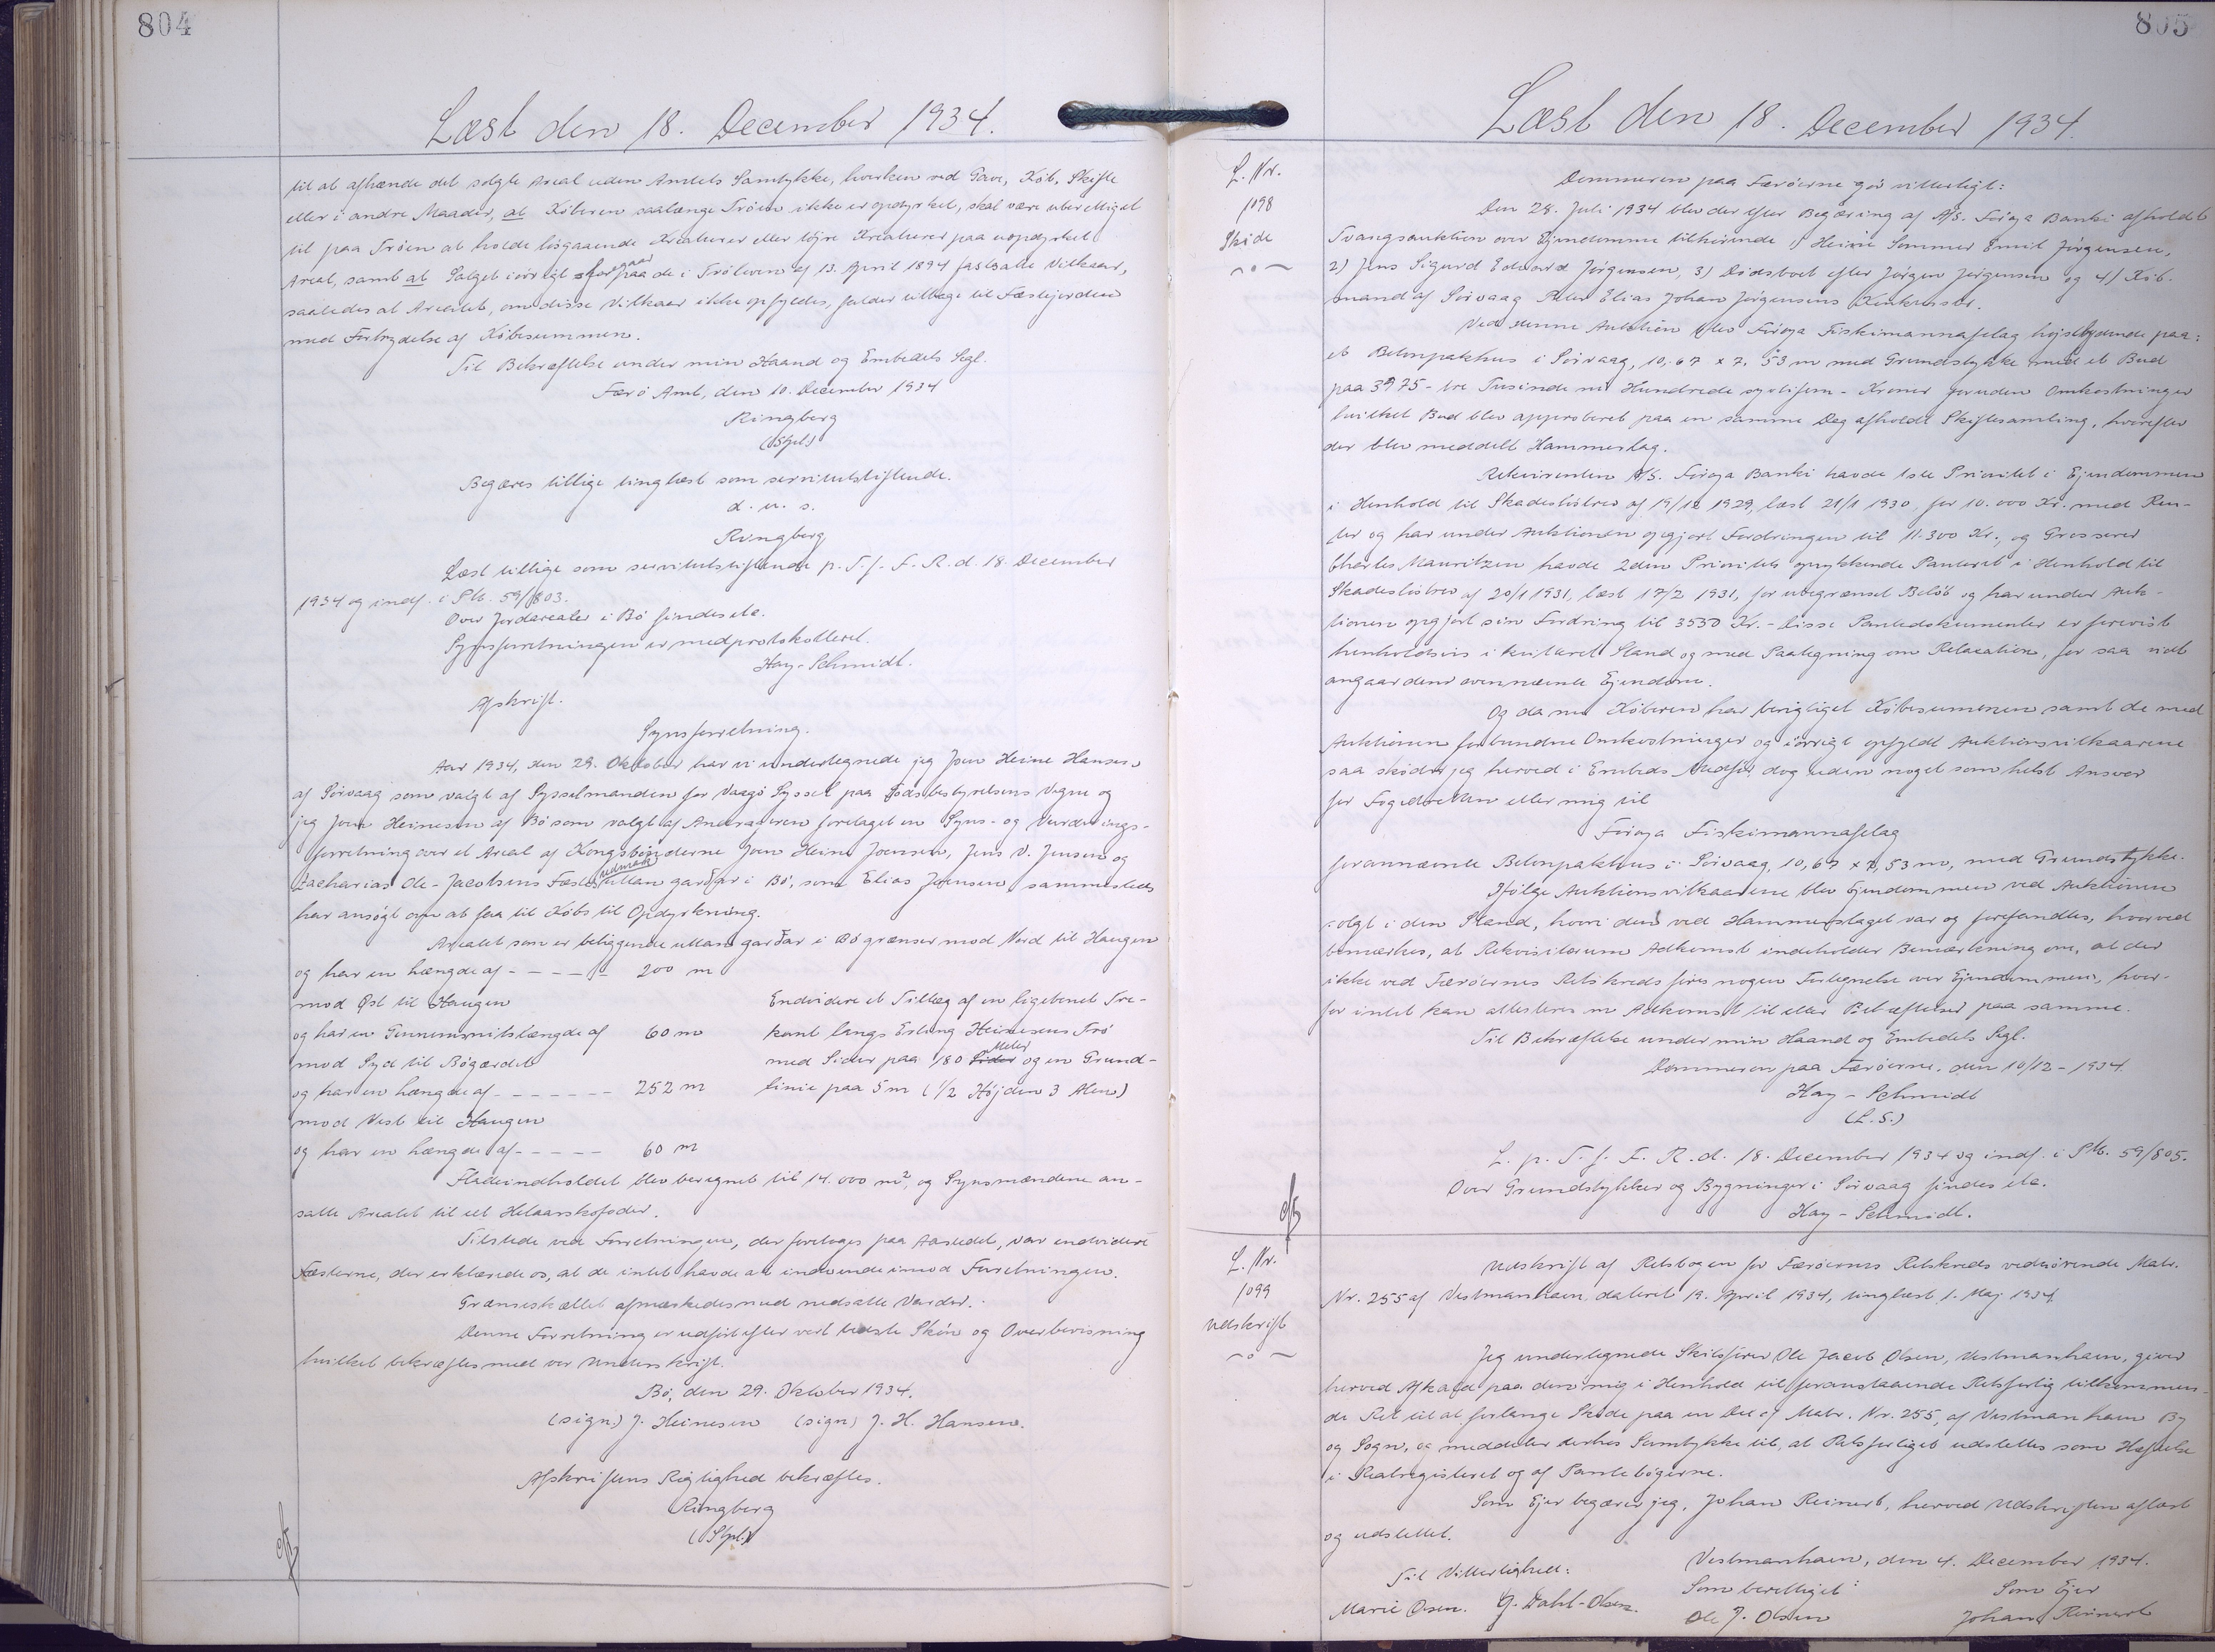 804
Læst den 18. December 1934.
til at afhænde det solgte Areal uden Amtets Samtykke, hverken ved Gave, Køb, Skifte
eller i andre Maader, at Køberen saalænge Trøen ikke er opdyrket, skal være uberettiget
til paa Trøen at holde løsgaaende Kreaturer eller tøjre Kreaturer paa uopdyrket
Areal, samt at Salget iøvrigt foregaar paa de i Trøloven af 13. April 1894 fastsatte Vilkaar,
saaledes at Arealet, om disse Vilkaar ikke opfyldes, falder tilbage til Fæstejorden
med Fortrydelse af Købesummen.
Til Bekræftelse under min Haand og Embedets Segl.
Færø Amt, den 10. December 1934
Ringberg
(Stpl.)
Begæres tillige tinglæst som servitutstiftende.
d. u. s.
Ringberg
Læst tillige som servitutstiftende p. T. f. F. R. d. 18. December
1934 og indf. i Pb. 59/803.
Over Jordarealer i Bø findes ete.
Synsforretningen er medprotokolleret.
Hay-Schmidt.
Afskrift.
Synsforretning.
Aar 1934, den 29. Oktober har vi undertegnede jeg Joen Heine Hansen
af Sørvaag som valgt af Sysselmanden for Vaagø Syssel paa Jordbestyrelsens Vegne og
jeg Joen Heinesen af Bø som valgt af Ansøgeren foretaget en Syns- og Vurderings-
forretning over et Areal af Kongsbønderne Joen Heine Joensen, Jens V. Jensen og
Zacharias Ole-Jacobsens Fæstes udmark uttan garðar i Bø, som Elias Joensen sammesteds
har ansøgt om at faa til Købs til Opdyrkning.
Arealet som er beliggende uttan garðar i Bø grænser mod Nord til Haugen
og har en Længde af - - - - - 200 m
mod Øst til Haugen
og har en Gennemsnitslængde af 60 m
mod Syd til Bøgærdet
og har en Længde af - - - - - - - 252 m
mod Vest til Haugen
og har en Længde af - - - - - 60 m
Endvidere et Tillæg af en ligebenet Tre-
kant langs Erling Heinesens Trø
med Sider paa 180 Sider Meter og en Grund-
linie paa 5 m (1/2 Højden 3 Alen)
Fladeindholdet blev beregnet til 14.000 m², og Synsmændene an-
satte Arealet til et Helaarskofoder.
Tilstede ved Forretningen, der foretoges paa Aastedet, var endvidere
Fæsterne, der erklærede os, at de intet havde at indvende imod Forretningen.
Grænseskellet afmærkedes med nedsatte Varder.
Denne Forretning er udført efter vort bedste Skøn og Overbevisning
hvilket bekræftes med vor Underskrift.
Bø, den 29. Oktober 1934.
(sign.) J. Heinesen (sign) J. H. Hansen.
Afskriftens Rigtighed bekræftes.
Ringberg
(Stpl.)
805
Læst den 18. December 1934.
L. Nr.
1098
Skøde
Dommeren paa Færøerne gør vitterligt:
Den 28. Juli 1934 blev der efter Begæring af A/S. Føroya Banki afholdt
Tvangsauktion over Ejendomme tilhørende 1) Heine Sommer Emil Jørgensen,
2) Jens Sigurd Edward Jørgensen, 3) Dødsboet efter Jørgen Jørgensen og 4) Køb-
mand af Sørvaag Peter Elias Johan Jørgensens Konkursbo.
Ved denne Auktion blev Føroya Fiskimannafelag højstbydende paa:
et Betonpakhus i Sørvaag, 10,67 x 7,53 m med Grundstykke med et Bud
paa 3975 - tre Tusinde ni Hundrede syvtifem - Kroner foruden Omkostninger
hvilket Bud blev approberet paa en samme Dag afholdt Skiftesamling, hvorefter
der blev meddelt Hammerslag.
Rekvirenten A/S. Føroya Banki havde 1ste Prioritet i Ejendommen
i Henhold til Skadesløsbrev af 19/12 1929, læst 21/1 1930, for 10.000 Kr. med Ren-
ter og har under Auktionen opgjort Fordringen til 11.300 Kr., og Grosserer
Charles Mauritzen havde 2den Prioritets oprykkende Panteret i Henhold til
Skadesløsbrev af 20/1 1931, læst 17/2 1931, for ubegrænset Beløb og har under Auk-
tionen opgjort sin Fordring til 3550 Kr. - Disse Pantedokumenter er forevist
henholdsvis i kvitteret Stand og med Paategning om Relaxation, for saa vidt
angaar denne ovennævnte Ejendom.
Og da nu Køberen har berigtiget Købesummen samt de med
Auktionen forbundne Omkostninger og iøvrigt opfyldt Auktionsvilkaarene
saa skøder jeg herved i Embeds Medfør, dog uden noget som helst Ansvar
for Fogedretten eller mig til
Føroya Fiskimannafelag
forannævnte Betonpakhus i Sørvaag, 10,67 x 7,53 m, med Grundstykke.
Ifølge Auktionsvilkaarene blev Ejendommen ved Auktionen
solgt i den Stand, hvori den ved Hammerslaget var og forefandtes, hvorved
bemærkes, at Rekvisitorum Adkomst indeholder Bemærkning om, at der
ikke ved Færøernes Retskreds føres nogen Fortegnelse over Ejendommen, hvor-
for intet kan attesteres om Adkomst til eller Behæftelser paa samme.
Til Bekræftelse under min Haand og Embedets Segl.
Dommeren paa Færøerne, den 10/12 - 1934
Hay-Schmidt
(L.S.)
L. p. T. f. F. R. d. 18. December 1934 og indf. i Pb. 59/805.
Over Grundstykker og Bygninger i Sørvaag findes ete.
Hay-Schmidt.
L. Nr.
1099
Udskrift
Udskrift af Retsbogen for Færøernes Retskreds vedrørende Matr.
Nr. 255 af Vestmanhavn, dateret 19. April 1934, tinglæst 1. Maj 1934.
Jeg undertegnede Skibsfører Ole Jacob Olsen, Vestmanhavn, giver
herved Afkald paa den mig i Henhold til foranstaaende Retsforlig tilkommen-
de Ret til at forlange Skøde paa en Del af Matr. Nr. 255, af Vestmanhavn By
og Sogn, og meddeler derhos Samtykke til, at Retsforliget udslettes som Hæftelse
i Realregisteret og af Pantebøgerne.
Som Ejer begærer jeg, Johan Reinert, herved Udskriften aflæst
og udslettet.
Vestmanhavn, den 4. December 1934.
Til Vitterlighed:
Som berettiget:
Som Ejer
Marie Olsen. G. Dahl-Olsen.
Ole J. Olsen
Johan Reinert